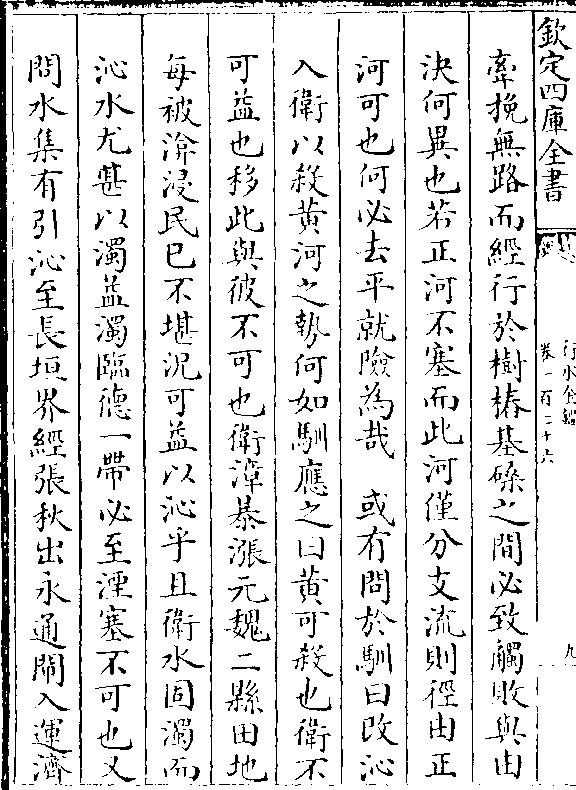 欽定四庫全書
行水金鑑
卷一百二十六
九
牽挽無路而經行於樹樁基磉之間必致觸敗與由
決何異也若正河不塞而此河僅分支流則徑由正
河可也何必去平就險為哉　或有問於馴曰改沁
入衛以殺黃河之勢何如馴應之曰黃可殺也衛不
可益也移此與彼不可也衛漳暴漲元魏二縣田地
每被渰浸民已不堪況可益以沁乎且衛水固濁而
沁水尤甚以濁益濁臨德一帶必至湮塞不可也又
問水集有引沁至長垣界經張秋出永通閘入運濟